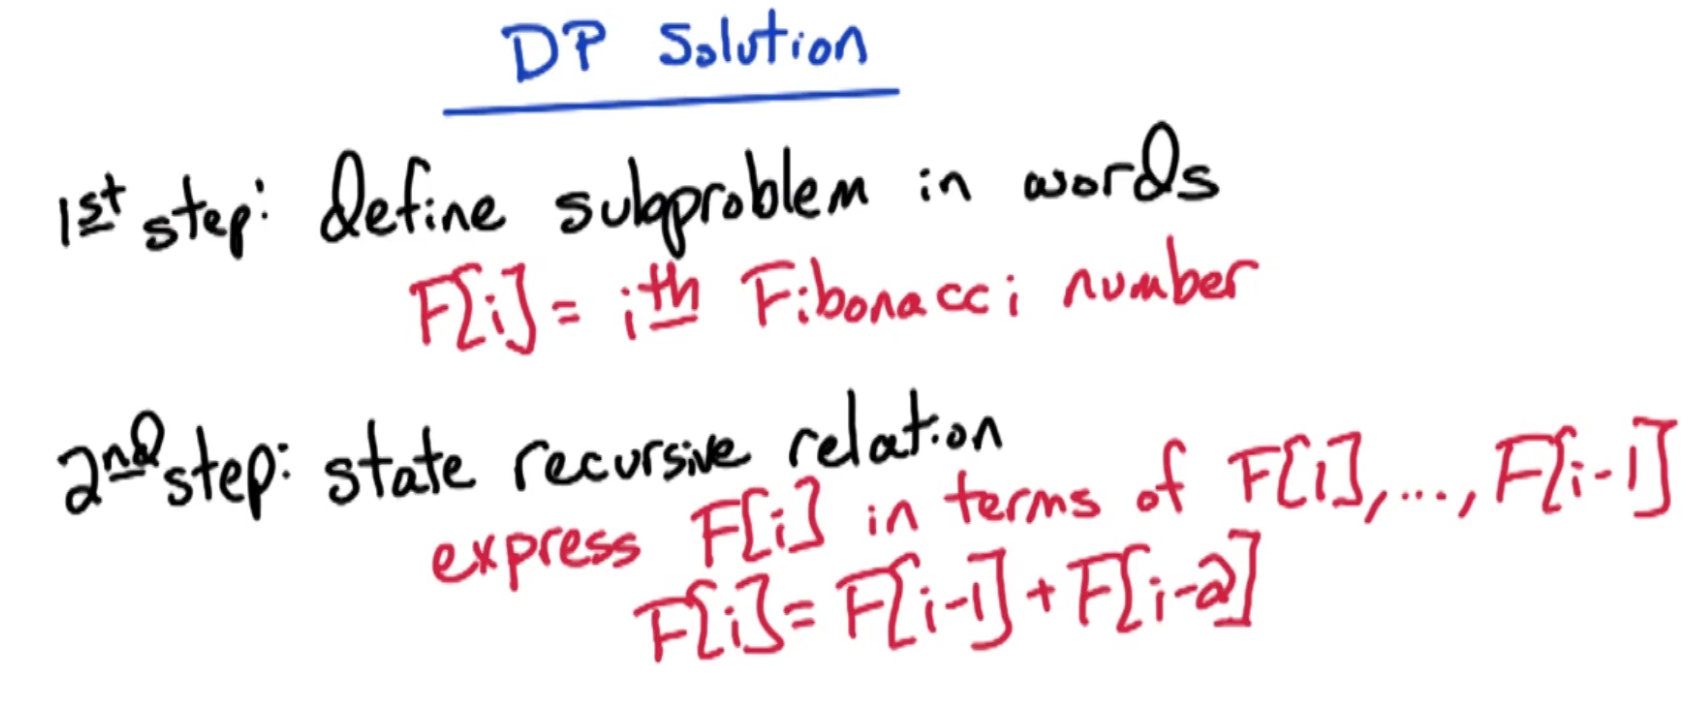 DP Solution
1st step: define subproblem in words
F[i] = ith Fibonacci number
2nd step: state recursive relation
express F[i] in terms of F[1], ..., F[i-1]
F[i] = F[i-1] + F[i-2]